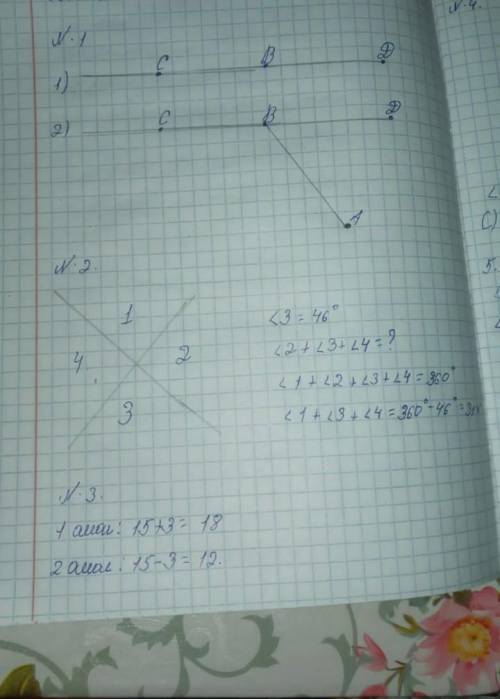 N.1
1) C B D
2) C B D
A
N.2.
1
4 2
3
∠3 = 46°
∠2 + ∠3 + ∠4 = ?
∠1 + ∠2 + ∠3 + ∠4 = 360°
∠1 + ∠3 + ∠4 = 360° - 46° =
N.3.
1 амал: 15+3 = 18
2 амал: 15-3 = 12.
N.4.
∠
C)
5.